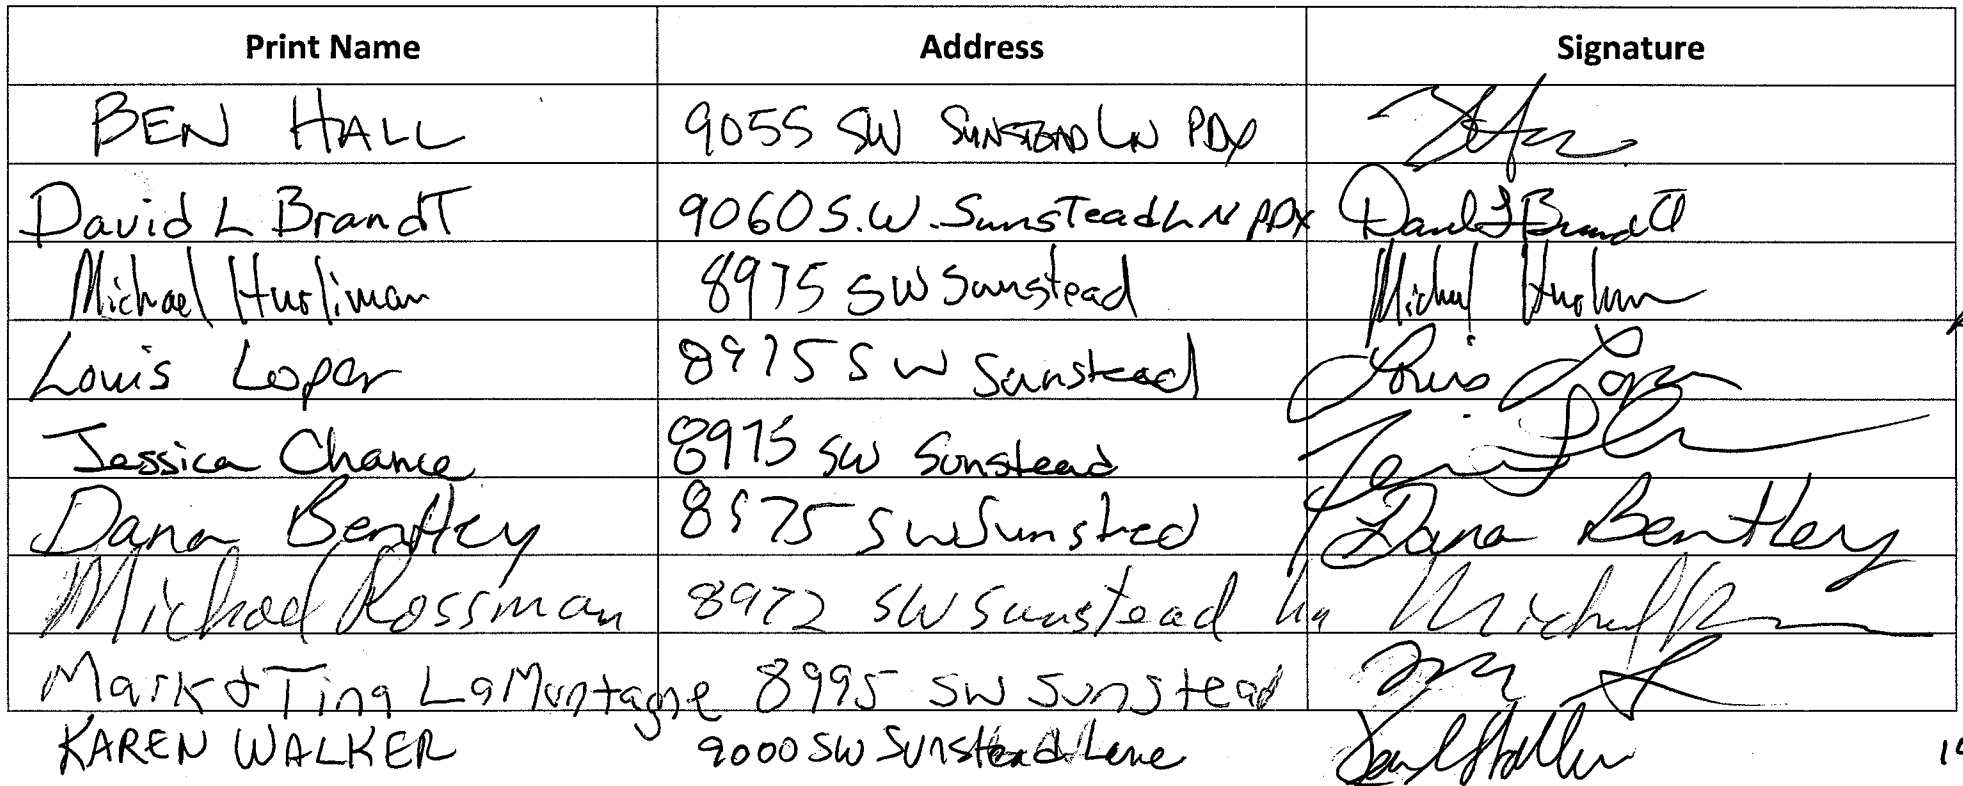 Print Name Address Signature
BEN HALL 9055 SW SUNSTEAD LN PDX
David L Brandt 9060 S.W. Sunstead LN PDX David L Brandt
Michael Hurliman 8975 SW Sunstead Michael Hurliman
Louis Loper 8975 SW Sunstead Louis Loper
Jessica Chance 8975 SW Sunstead
Dana Bentley 8975 SW Sunsted Dana Bentley
Michael Rossman 8972 SW Sunstead Ln Michael R
Mark & Tina LaMontagne 8995 SW Sunstead
KAREN WALKER 9000 SW Sunstead Lane